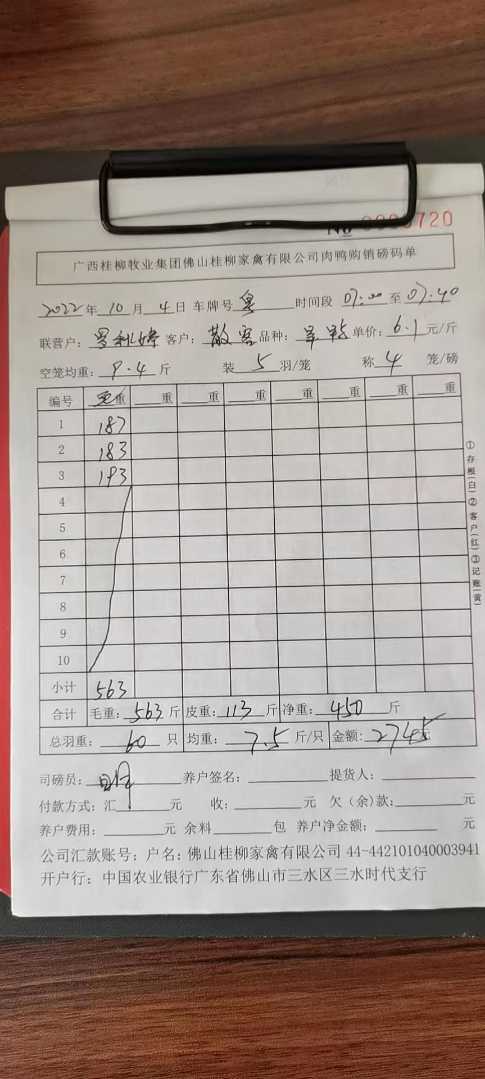 № 720
广西桂柳牧业集团佛山桂柳家禽有限公司肉鸭购销磅码单
2022年 10月 4日 车牌号 粤 时间段 07:00 至 07:40
联营户: 客户: 散客 品种: 单价: 6.1 元/斤
空笼均重: 9.4 斤 装 5 羽/笼 称 4 笼/磅
编号 毛重 重 重 重 重 重 重 重
1 187
2 183
3 193
4
5
6
7
8
9
10
小计 563
合计 毛重: 563 斤 皮重: 113 斤 净重: 450 斤
总羽重: 60 只 均重: 7.5 斤/只 金额: 2745元
司磅员: 养户签名: 提货人:
付款方式: 汇 元 收: 元 欠(余)款: 元
养户费用: 元 余料 包 养户净金额: 元
公司汇款账号: 户名: 佛山桂柳家禽有限公司 44-442101040003941
开户行: 中国农业银行广东省佛山市三水区三水时代支行
①存根(白)②客户(红)③记账(黄)